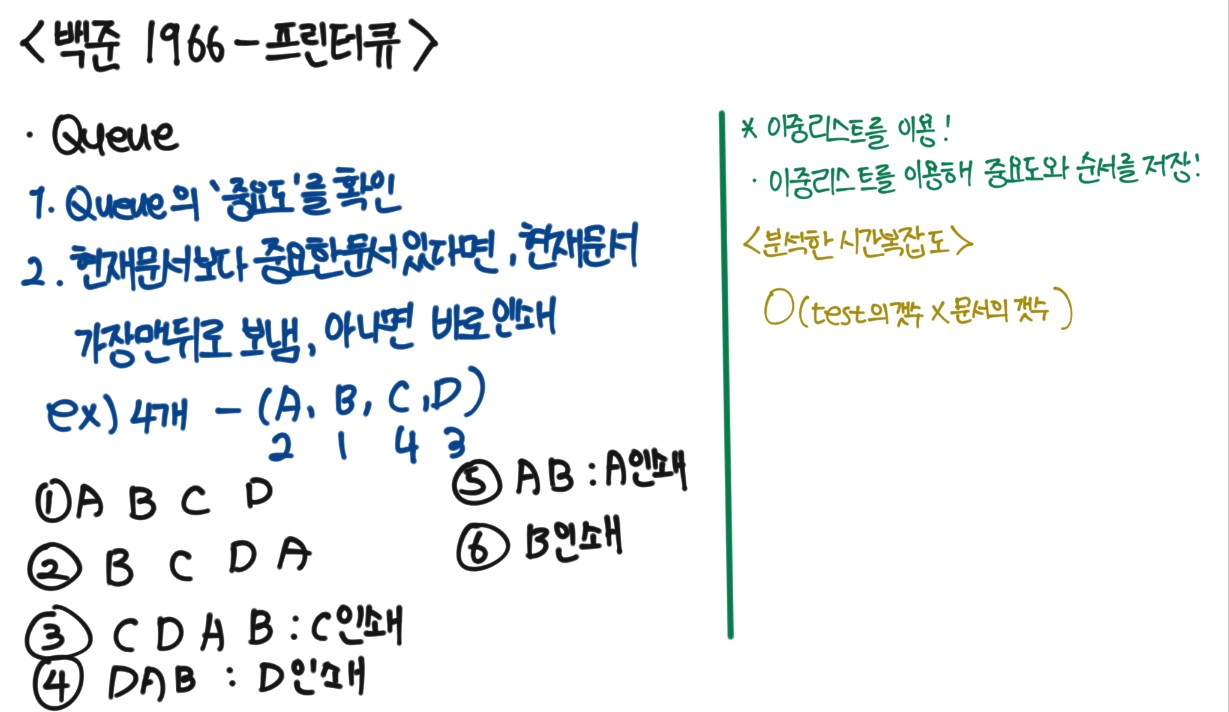 <백준 1966 - 프린터큐>
· Queue
1. Queue의 '중요도'를 확인
2. 현재문서보다 중요한문서있다면, 현재문서
가장맨뒤로 보냄, 아니면 바로인쇄
ex) 4개 - (A, B, C, D)
2 1 4 3
① A B C D
② B C D A
③ C D A B : C인쇄
④ D A B : D인쇄
⑤ A B : A인쇄
⑥ B인쇄
* 이중리스트를 이용!
· 이중리스트를 이용해 중요도와 순서를 저장!
<분석한 시간복잡도>
O(test의갯수 × 문서의 갯수)